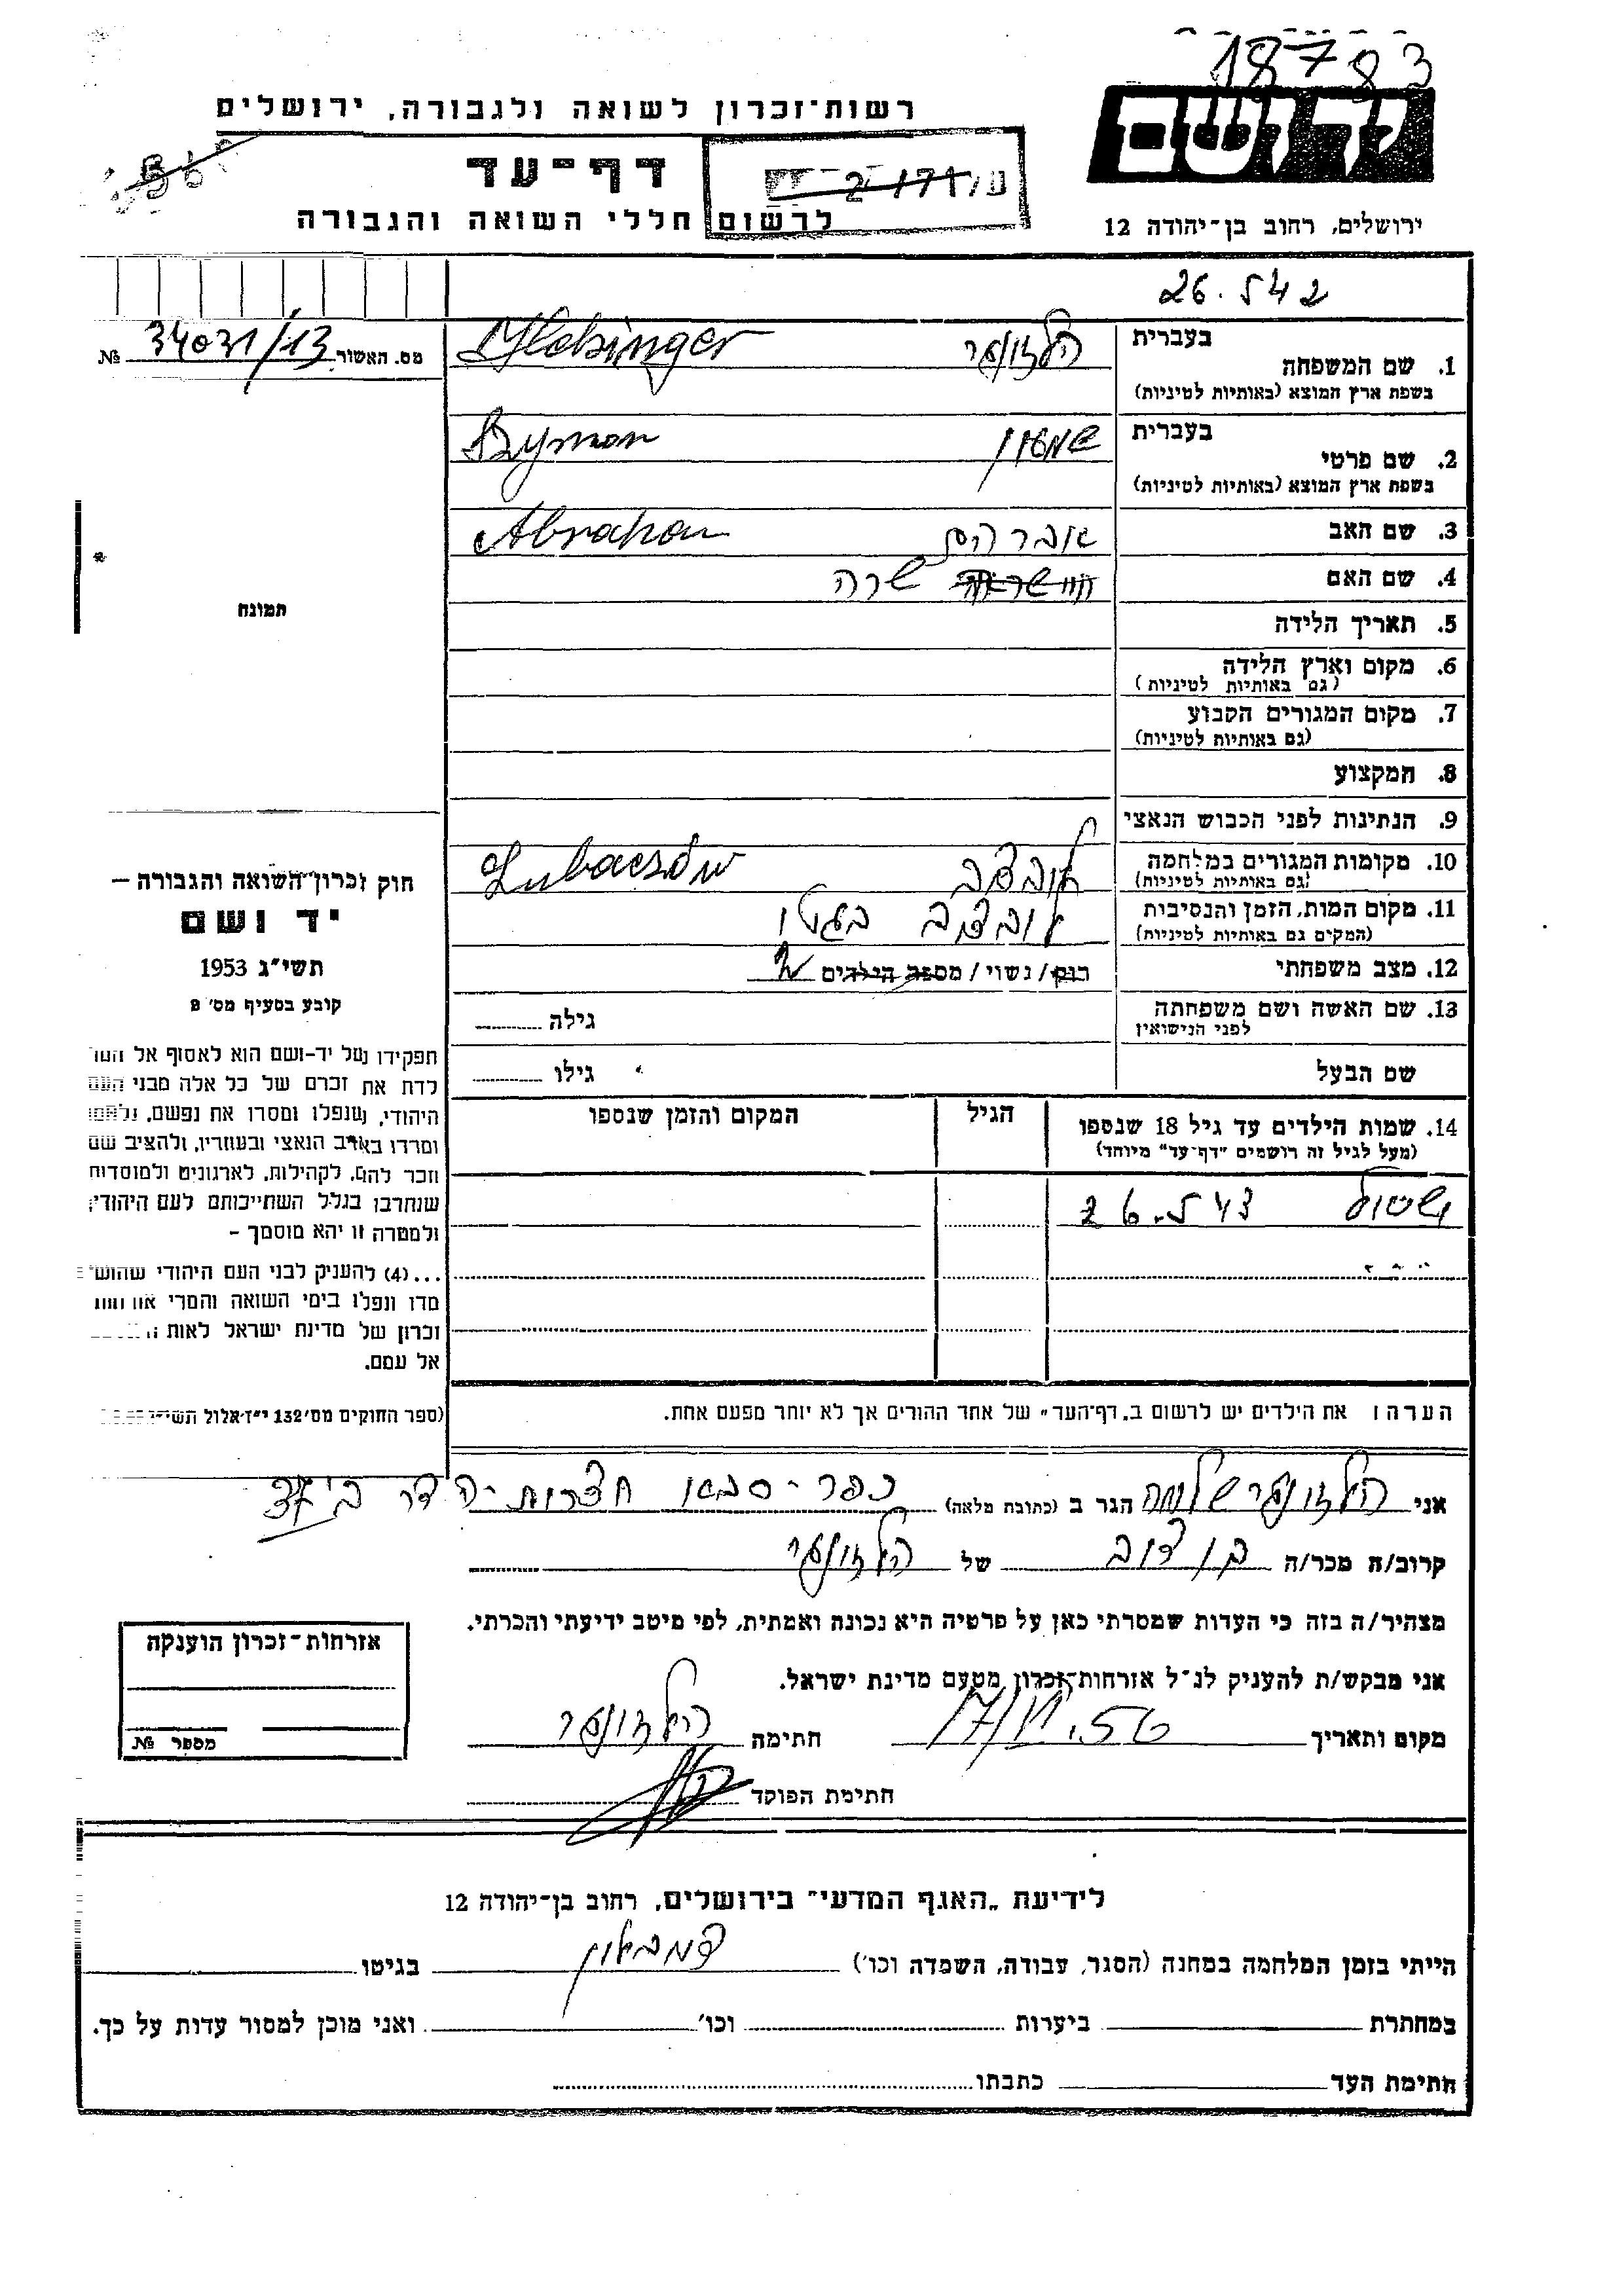 18783
יד ושם
רשות־זכרון לשואה ולגבורה, ירושלים
דף־עד
לרשום חללי השואה והגבורה
ירושלים, רחוב בן־יהודה 12
26.542
מס. האשור 34031/13 №
בעברית
1. שם המשפחה
בשפת ארץ המוצא (באותיות לטיניות)
הלזינגר
בעברית
2. שם פרטי
בשפת ארץ המוצא (באותיות לטיניות)
שמעון Szymon
3. שם האב Abraham
4. שם האם שרה
5. תאריך הלידה
6. מקום וארץ הלידה
(גם באותיות לטיניות)
7. מקום המגורים הקבוע
(גם באותיות לטיניות)
8. המקצוע
9. הנתינות לפני הכבוש הנאצי
10. מקומות המגורים במלחמה
(גם באותיות לטיניות)
Lubaczów
11. מקום המות, הזמן והנסיבות
(המקים גם באותיות לטיניות)
בגטו
12. מצב משפחתי רוק/נשוי/מספר הילדים
13. שם האשה ושם משפחתה
לפני הנישואין
גילה
שם הבעל גילו
תמונה
חוק זכרון־השואה והגבורה —
יד ושם
תשי״ג 1953
קובע בסעיף מס׳ 8
תפקידו של יד-ושם הוא לאסוף אל
לדת את זכרם של כל אלה מבני העם
היהודי, שנפלו ומסרו את נפשם, נלחמו
ומרדו באויב הנאצי ובעוזריו, ולהציב שם
וזכר להם, לקהילות, לארגונים ולמוסדות
שנחרבו בגלל השתייכותם לעם היהודי;
ולמטרה זו יהא מוסמך -
...(4) להעניק לבני העם היהודי
מדו ונפלו בימי השואה והמרי
זכרון של מדינת ישראל לאות
אל עמם.
(ספר החוקים מס׳ 132 י״ז אלול
14. שמות הילדים עד גיל 18 שנספו
(מעל לגיל זה רושמים "דף־עד" מיוחד)
הגיל
המקום והזמן שנספו
26.543
הערה: את הילדים יש לרשום ב„דף־העד״ של אחד ההורים אך לא יותר מפעם אחת.
אני הלזינגר שלמה הגר ב (כתובת מלאה) כפר-סבא
קרוב/ה מכר/ה בן דוד של הלזינגר
מצהיר/ה בזה כי העדות שמסרתי כאן על פרטיה היא נכונה ואמתית, לפי מיטב ידיעתי והכרתי.
אני מבקש/ת להעניק לנ״ל אזרחות־זכרון מטעם מדינת ישראל.
מקום ותאריך 17/VI.56 חתימה הלזינגר
חתימת הפוקד
אזרחות־זכרון הוענקה
מספר №
לידיעת „האגף המדעי״ בירושלים, רחוב בן־יהודה 12
הייתי בזמן המלחמה במחנה (הסגר, עבודה, השמדה וכו׳) בגיטו
במחתרת ביערות וכו׳ ואני מוכן למסור עדות על כך.
חתימת העד כתבתו